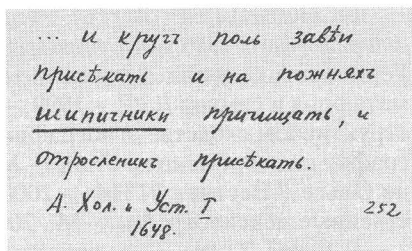 ... и кругъ поль завѣи
присѣкать и на пожняхъ
шипичники причищать, и
отросленикъ присѣкать.
А. Хол. и Уст. I 252
1648.